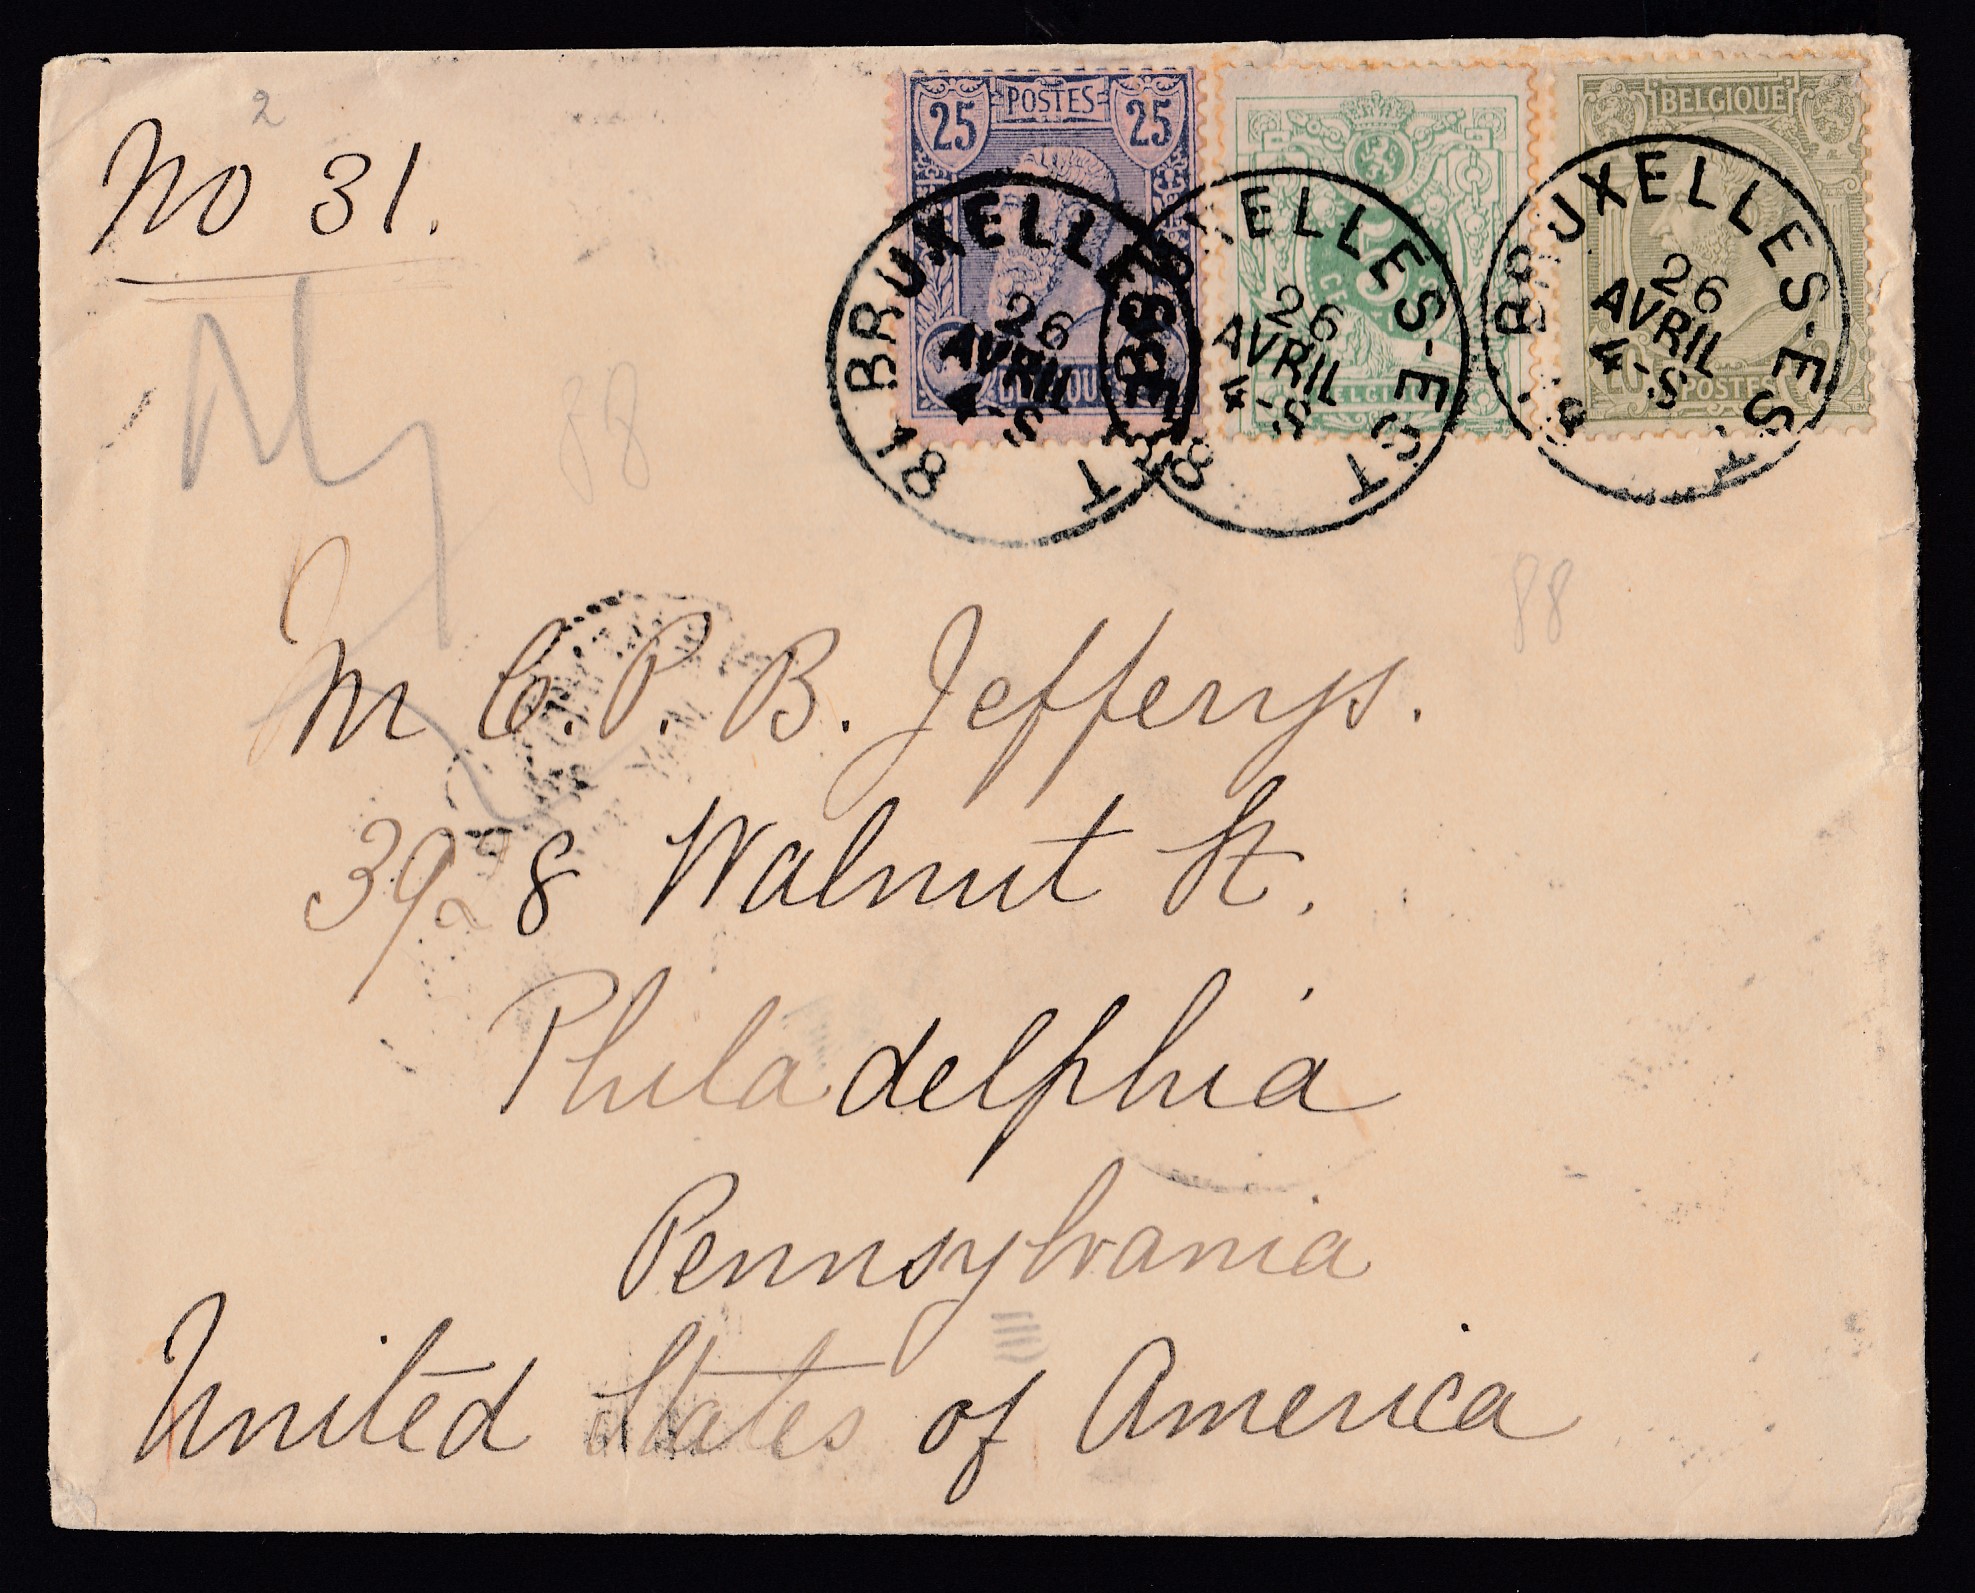 2
No 31.
25 POSTES 25
BELGIQUE
5
CENT
BELGIQUE
BELGIQUE
20 POSTES 20
BRUXELLES-EST
26
AVRIL
4-S
BRUXELLES-EST
26
AVRIL
4-S
BRUXELLES-EST
26
AVRIL
4-S
88
88
Mr C. P. B. Jefferys.
3928 Walnut St.
Philadelphia
Pennsylvania
United States of America